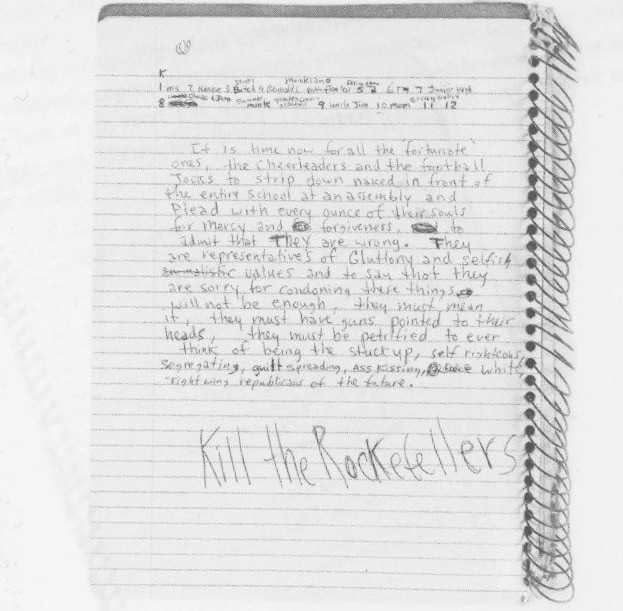 K
1 me 2 3 Butch 4 5 6 7
8 9 uncle Jim 10 mom 11 12
It is time now for all the "fortunate"
ones, the cheerleaders and the football
Jocks to strip down naked in front of
the entire school at an assembly and
Plead with every ounce of their souls
for mercy and forgiveness, to
admit that They are wrong. They
are representatives of Gluttony and selfish
values and to say that they
are sorry for condoning these things
will not be enough, they must mean
it, they must have guns pointed to their
heads, they must be petrified to ever
think of being the stuck up, self righteous,
segregating, guilt spreading, ASS Kissing, white,
right wing republicans of the future.
Kill the Rockefellers